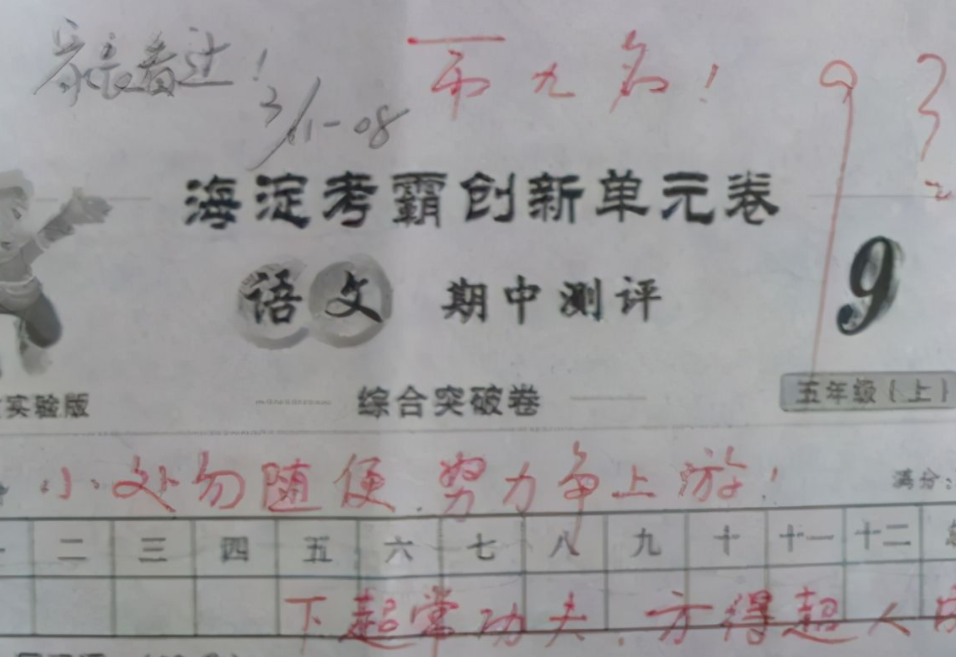 家长看过!
3/11-08
九名! 93
海淀考霸创新单元卷
语文 期中测评 9
实验版 综合突破卷 五年级(上)
小处勿随便.努力争上游! 满分:
二 三 四 五 六 七 八 九 十 十一 十二
下超常功夫,方得超人